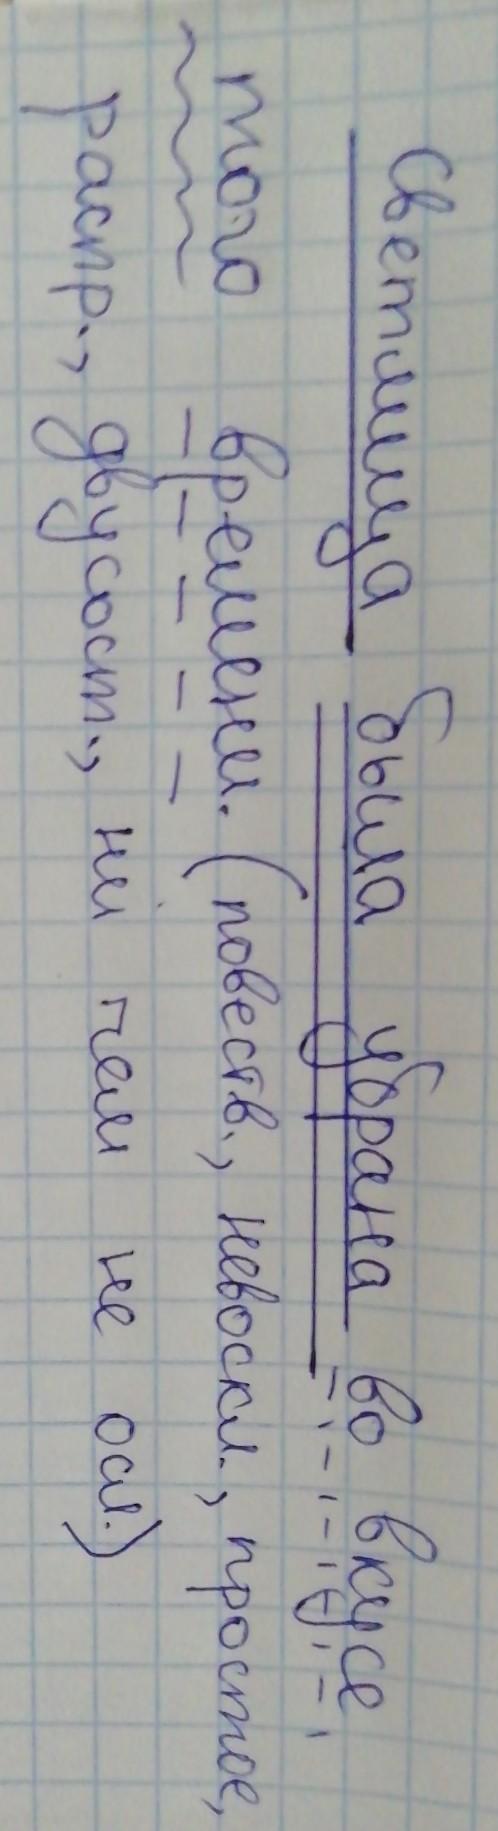 Светлица была убрана во вкусе
того времени. (повеств., невоскл., простое,
распр., двусост., ни чем не осл.)